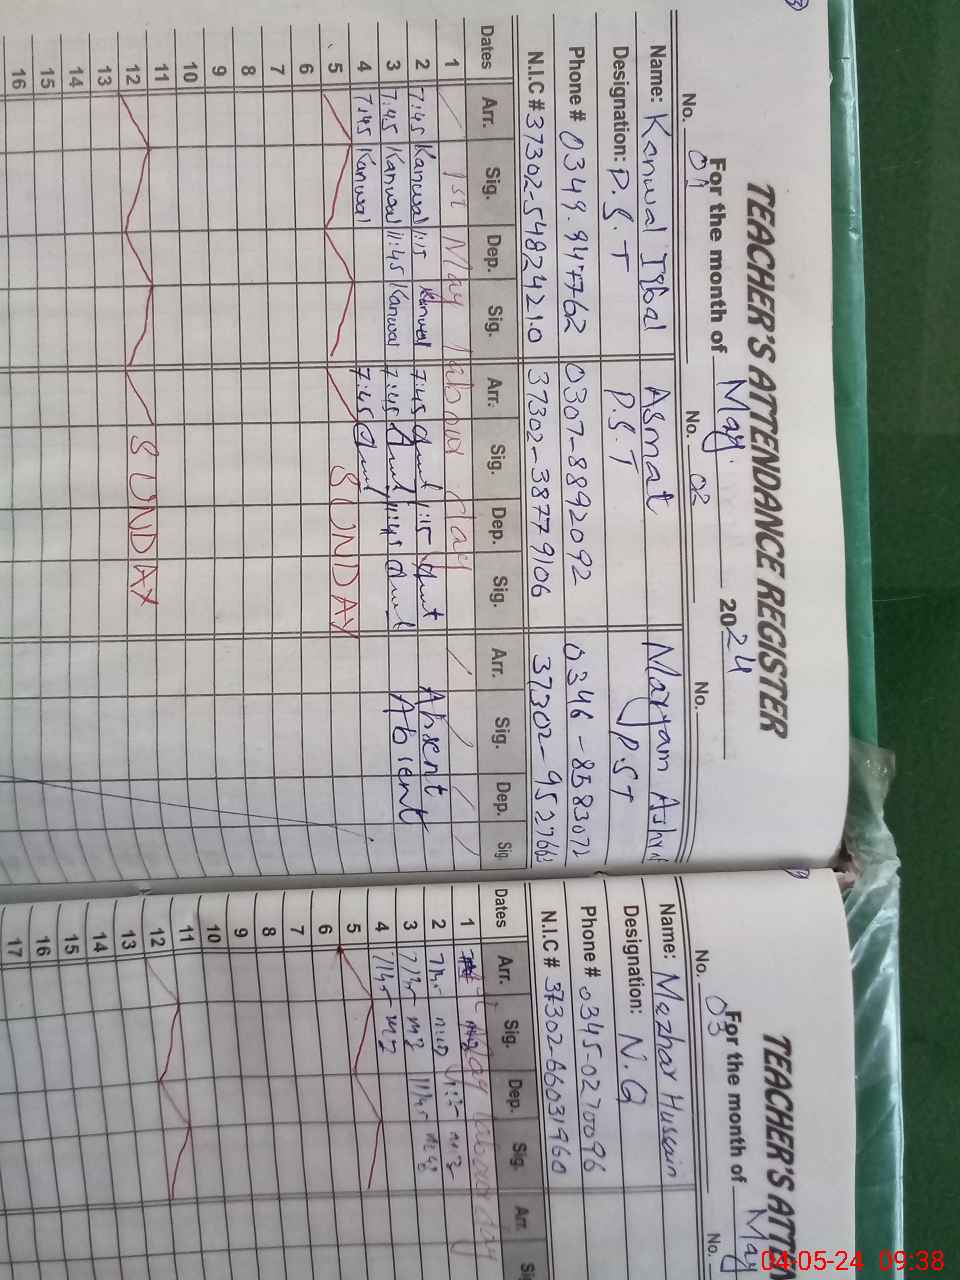 TEACHER'S ATTENDANCE REGISTER
For the month of May 2024
No. 01 No. 02 No.
Name: Kanwal Iqbal Asmat Maryam
Designation: P.S.T P.S.T P.S.T
Phone # 0307-8892092 0346-8583072
N.I.C # 37302-5482421.0 37302-38779106
Dates Arr. Sig. Dep. Sig. Arr. Sig. Dep. Sig. Arr. Sig. Dep. Sig.
1 1st May labour day
2 7:45 Kanwal 1:15 Kanwal 7:45 1:15 Absent
3 7:45 Kanwal 11:45 Kanwal 7:45 11:45 Absent
4 7:45 Kanwal 7:45
5 SUNDAY
6
7
8
9
10
11
12 SUNDAY
13
14
15
16
TEACHER'S ATTEN
For the month of May
No. 03 No.
Name: Mazhar Hussain
Designation: N.Q
Phone # 0345-0270096
N.I.C # 37302-66031960
Dates Arr. Sig. Dep. Sig. Arr.
1 May labour day
2
3
4
5
6
7
8
9
10
11
12
13
14
15
16
17
04-05-24 09:38